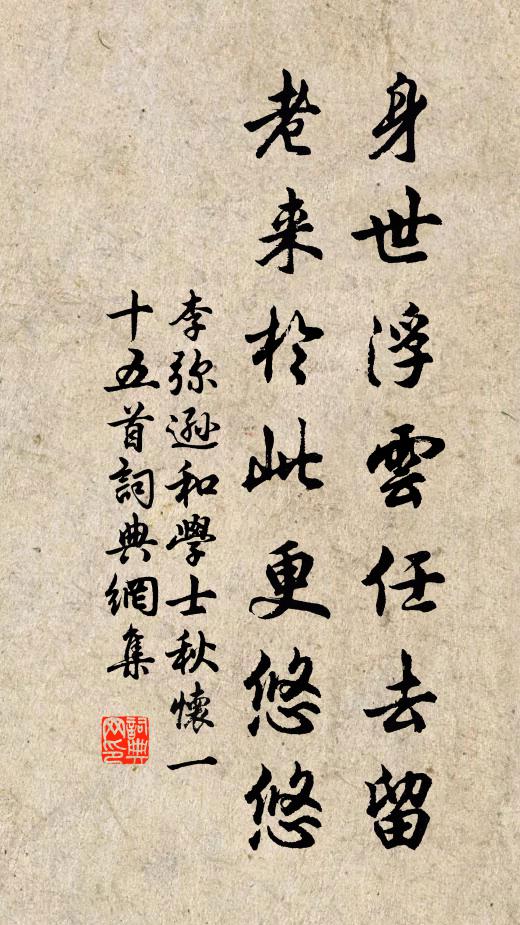 身世浮雲任去留
老来於此更悠悠
李弥遜和學士秋懷一
十五首詞典網集
詞典
网印